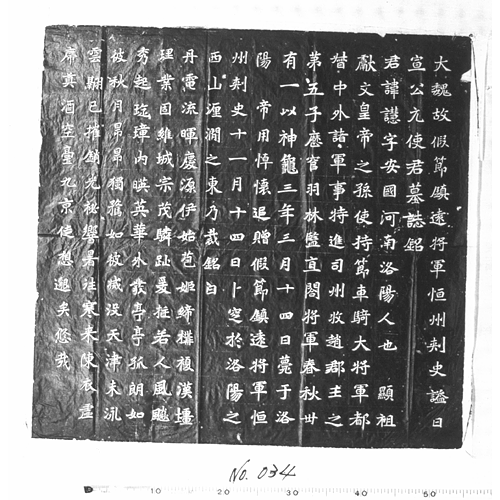 大魏故假節鎮遠將軍恒州刺史謚曰
宣公元使君墓誌銘
君諱譿字安國河南洛陽人也顯祖
獻文皇帝之孫使持節車騎大將軍都
督中外諸軍事特進司州牧趙郡王之
第五子歷官羽林監直閤將軍春秋卅
有一以神龜三年三月十四日薨于洛
陽帝用悼懷追贈假節鎮遠將軍恒
州刺史十一月十四日卜窆於洛陽之
西山瀍澗之東乃裁銘曰
丹電流暉慶源伊始苞姬締構複漢壃
理業固維城宗茂麟趾爰挺若人風飈
秀起琁璋內暎英華外叢亭亭孤朗如
彼秋月昂昂獨騖如彼威沒天津未泝
雲翮已摧銷光祕響暑往寒來陳衣虛
席奠酒空臺九京徒想邈矣悠哉
No. 034
0 10 20 30 40 50